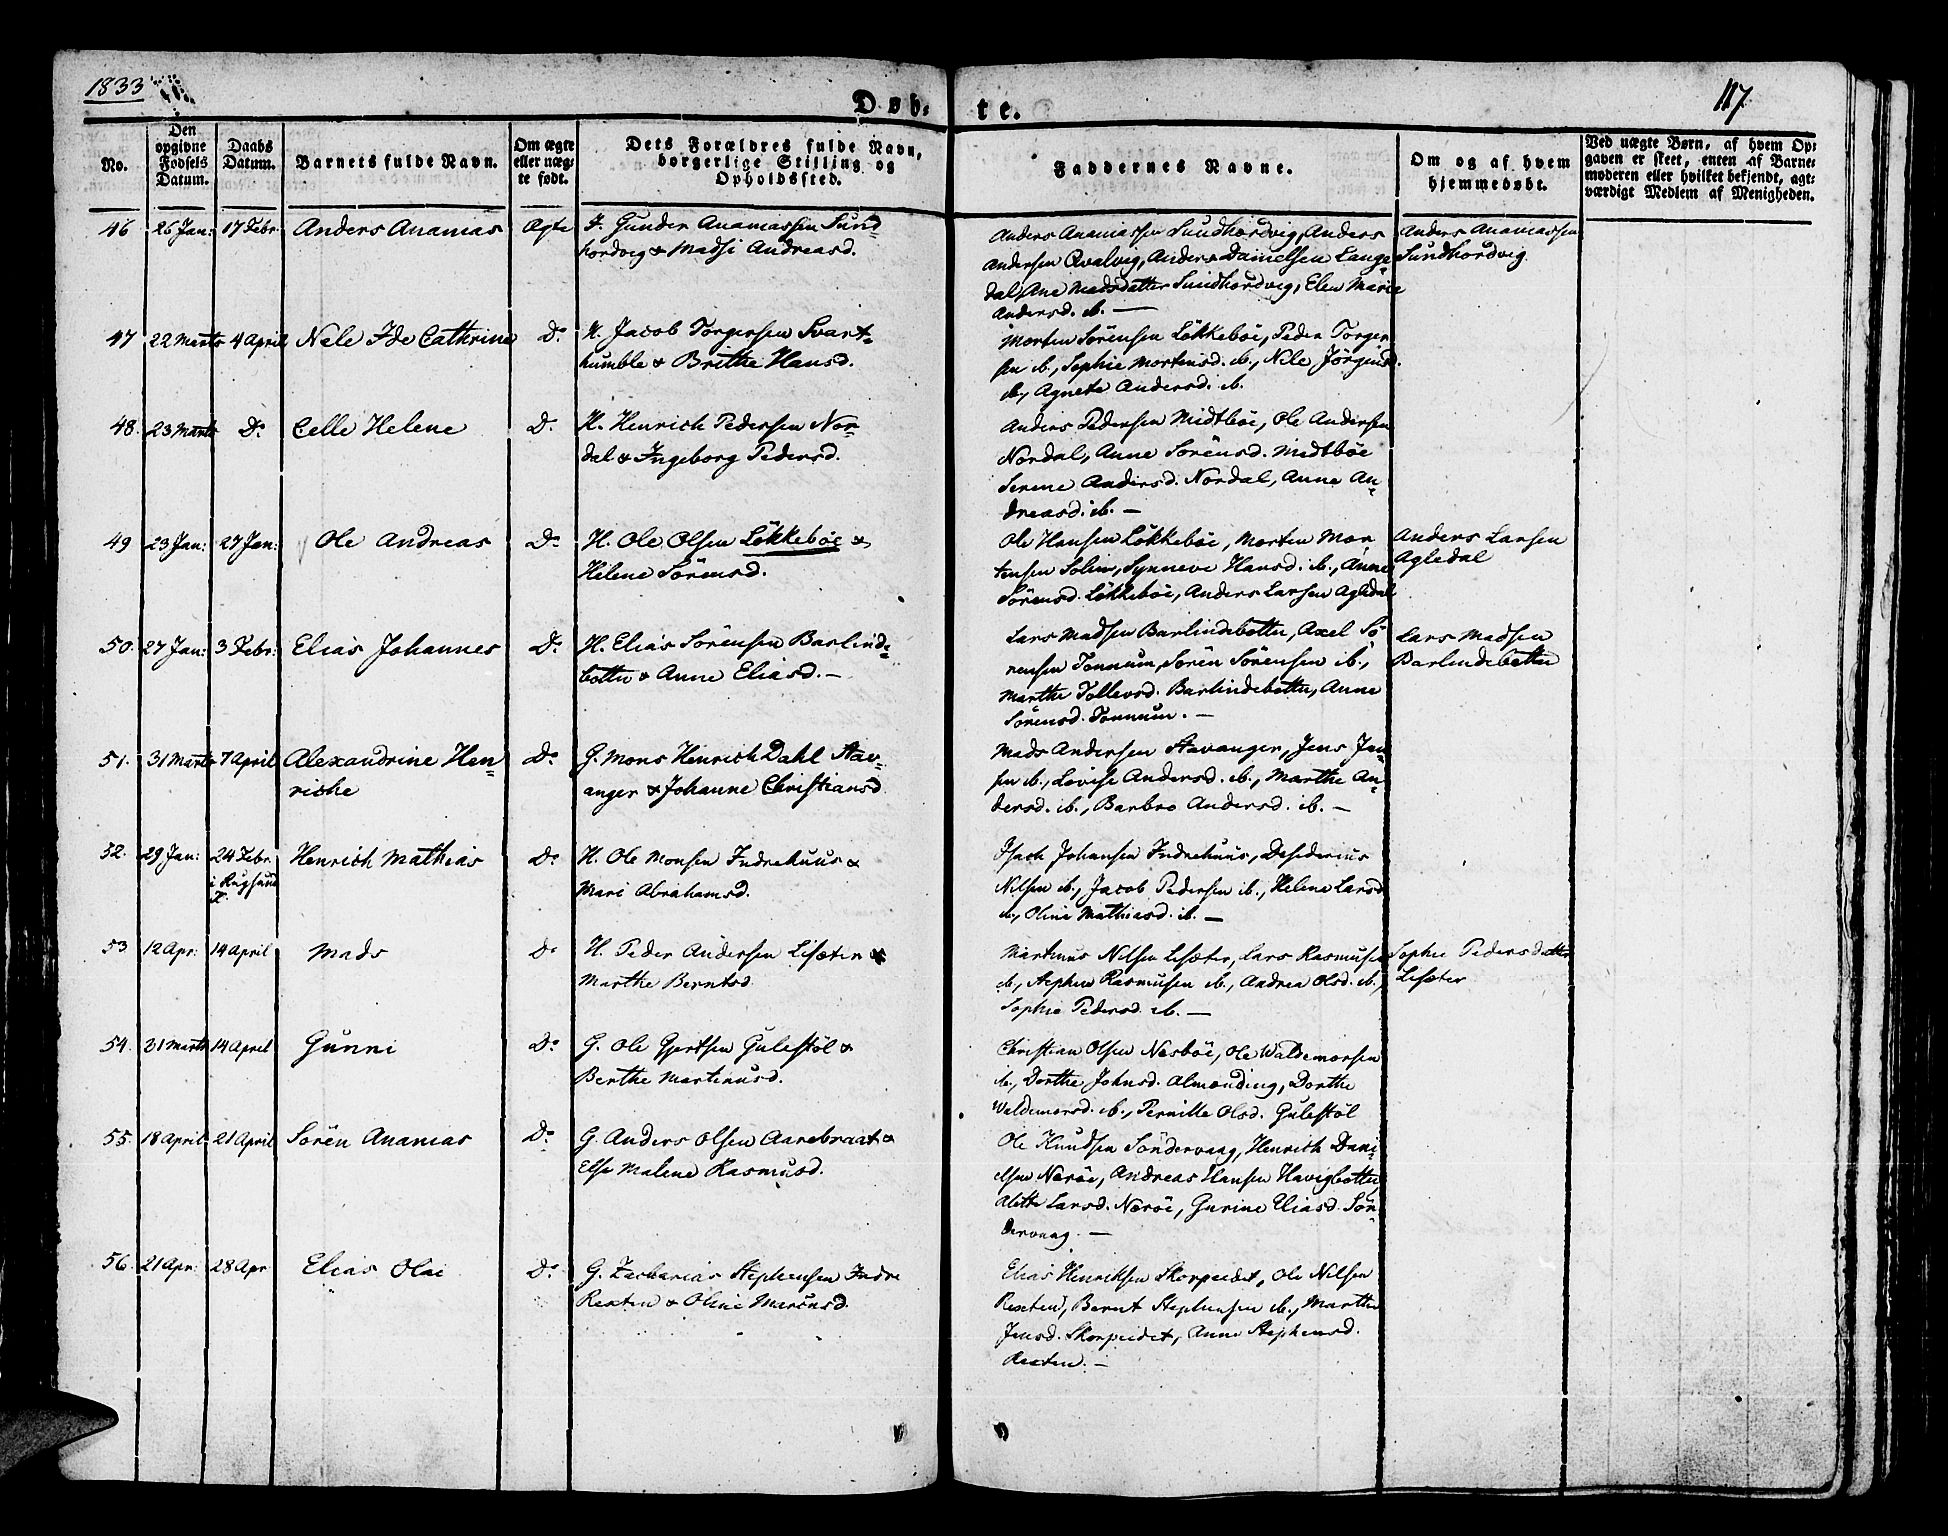 1833
117
Døb-
te.
No.
Den
opgivne
Fødsels
Datum.
Daabs
Datum.
Barnets fulde Navn.
Om ægte
eller uæg-
te født.
Dets Forældres fulde Navn,
borgerlige Stilling og
Opholdssted.
Faddernes Navne.
Om og af hvem
hjemmedøbt.
Ved uægte Børn, af hvem Op-
gaven er skeet, enten af Barne-
moderen eller hvilket bekjendt, agt-
værdigt Medlem af Menigheden.
46 26 Jan: 17 Febr Anders Ananias Ægte
Gunder Ananiassen Sund-
hordvig & Madsi Andreasd.
Anders Ananiassen Sundhordvig, Anders
Andersen Qvalvig, Anders Danielsen Lange-
dal, Ane Madsdatter Sundhordvig, Elen Marie
Andersd. ib. —
Anders Ananiassen
Sundhordvig
47 22 Marts 4 April Nele Ide Cathrine Do
H. Jacob Torgersen Svart-
humble & Brithe Hansd.
Morten Sörensen Lökkeböe, Peder Torger-
sen ib., Sophie Mortensd. ib., Nele Jörgensd.
ib., Agnete Andersd. ib.
48. 23 Marts Do Celle Helene Do
H. Henrich Pedersen Nor-
dal & Ingeborg Pedersd.
Anders Pedersen Midtböe, Ole Andersen
Nordal, Anne Sörensd. Midtböe
Serene Andersd. Nordal, Anne An-
dreasd. ib. —
49 23 Jan: 27 Jan: Ole Andreas Do
H. Ole Olsen Lökkeböe &
Helene Sörensd.
Ole Hansen Lökkeböe, Morten Mor-
tensen Solim, Synneve Hansd. ib., Anne
Sörensd. Lökkeböe, Anders Larsen Agledal
Anders Larsen
Agledal
50. 27 Jan: 3 Febr: Elias Johannes Do
H. Elias Sörensen Barlind-
botten & Anne Eliasd. —
Lars Madsen Barlindebotten, Axel Sö-
rensen Tonnum, Sören Sörensen ib.,
Marthe Tollevsd. Barlindebotten, Anne
Sörensd. Tonnum. —
Lars Madsen
Barlindebotten
51. 31 Marts 7 April Alexandrine Hen-
riche Do
G. Mons Henrich Dahl Stav-
anger & Johanne Christiansd
Mads Andersen Stavanger, Jens Jen-
sen ib., Lovise Andersd. ib., Marthe An-
dersd. ib., Barbro Andersd. ib. —
52. 29 Jan: 24 Febr
i Rugsund
K. Henrich Mathias Do
H. Ole Monsen Indrehuus &
Mari Abrahamsd.
Isach Johansen Indrehuus, Desiderius
Nilsen ib., Jacob Pedersen ib., Helene Larsd
ib., Oline Mathiasd. ib. —
53 12 Apr: 14 April Mads Do
H. Peder Andersen Lisæter &
Marthe Berntsd.
Martinus Nilsen Lisæter, Lars Rasmusen
ib., Stephen Rasmusen ib., Andrea Olsd. ib.,
Sophie Pedersd. ib. —
Sophie Pedersdatter
Lisæter
54. 31 Marts 14 April Gunni Do
G. Ole Gjertsen Gulestöl &
Berthe Martinusd.
Christian Olsen Nesböe, Ole Waldemorsen
ib., Dorthe Johnsd. Almending, Dorthe
Waldemorsd. ib., Pernille Olsd. Gulestöl
55. 18 April 21 April Sören Ananias Do
G. Anders Olsen Aarebraat &
Else Malene Rasmusd.
Ole Knudsen Söndervaag, Henrich Dani-
elsen Neröe, Andreas Hansen Havigbotten
Alethe Larsd. Neröe, Gurine Eliasd. Sön-
dervaag. —
56. 21 Apr: 28 Apr Elias Olai Do
G. Zacharias Stephensen Indre
Rexten & Oline Mariusd.
Elias Henriksen Skorpeidet, Ole Nilsen
Rexten, Bernt Stephensen ib., Marthe
Jensd. Skorpeidet, Anne Stephensd.
Rexten. —